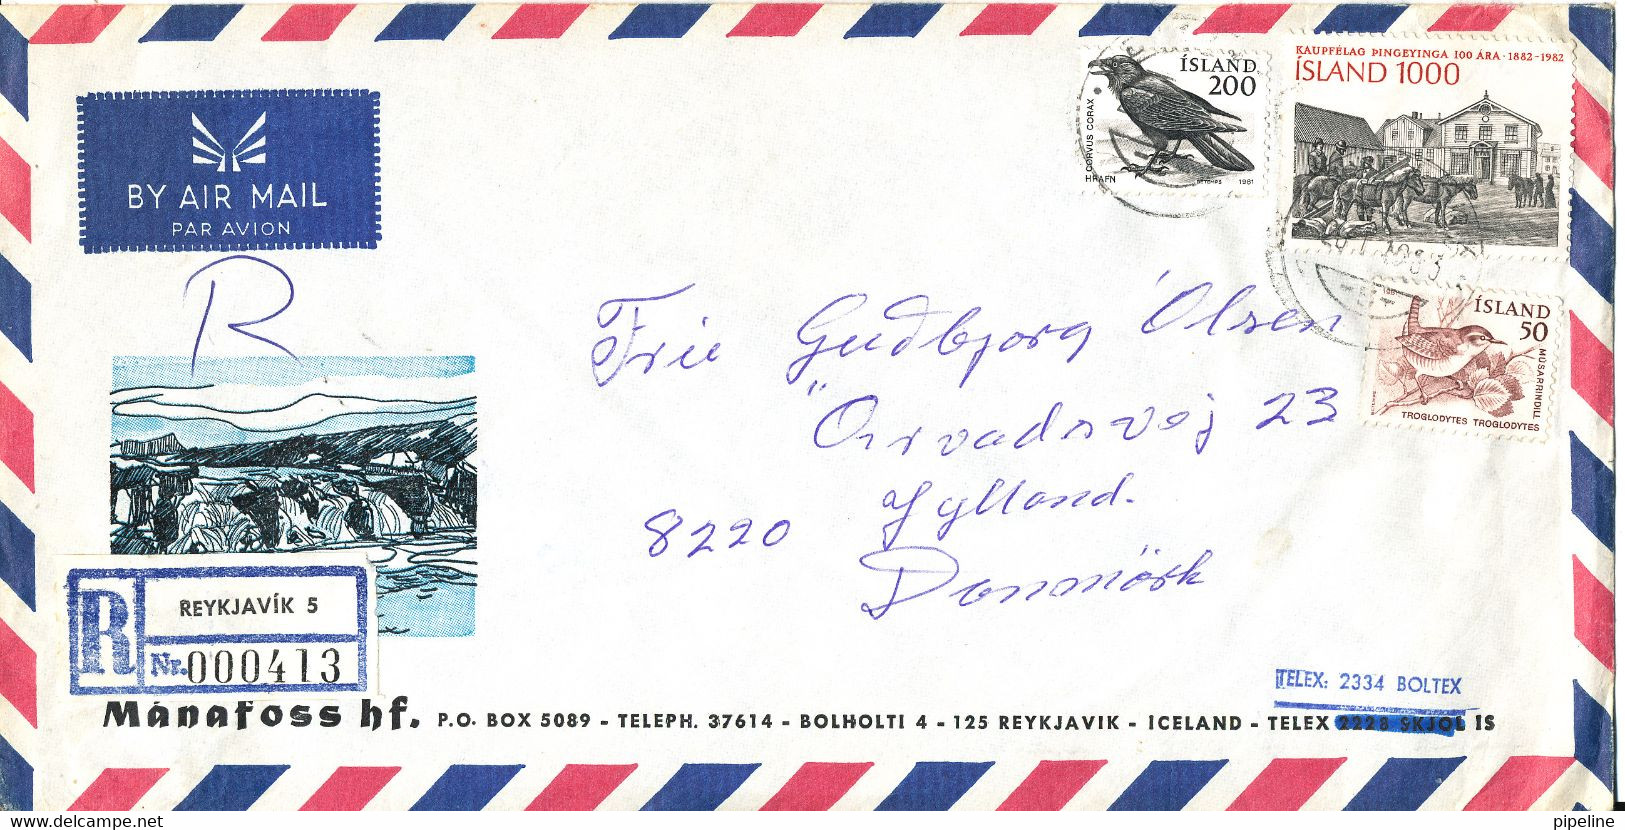 BY AIR MAIL
PAR AVION
R
ÍSLAND
200
CORVUS CORAX
HRAFN
1981
KAUPFÉLAG ÞINGEYINGA 100 ÁRA · 1882-1982
ÍSLAND 1000
1983
ÍSLAND
50
MÚSARRINDILL
TROGLODYTES TROGLODYTES
Frú Guðbjorg Ólsen
Örvadsvej 23
8220 Jylland.
Danmörk
R REYKJAVÍK 5
Nr. 000413
TELEX: 2334 BOLTEX
Mánafoss hf. P.O. BOX 5089 - TELEPH. 37614 - BOLHOLTI 4 - 125 REYKJAVIK - ICELAND - TELEX 2228 SKJOL IS
pipeline